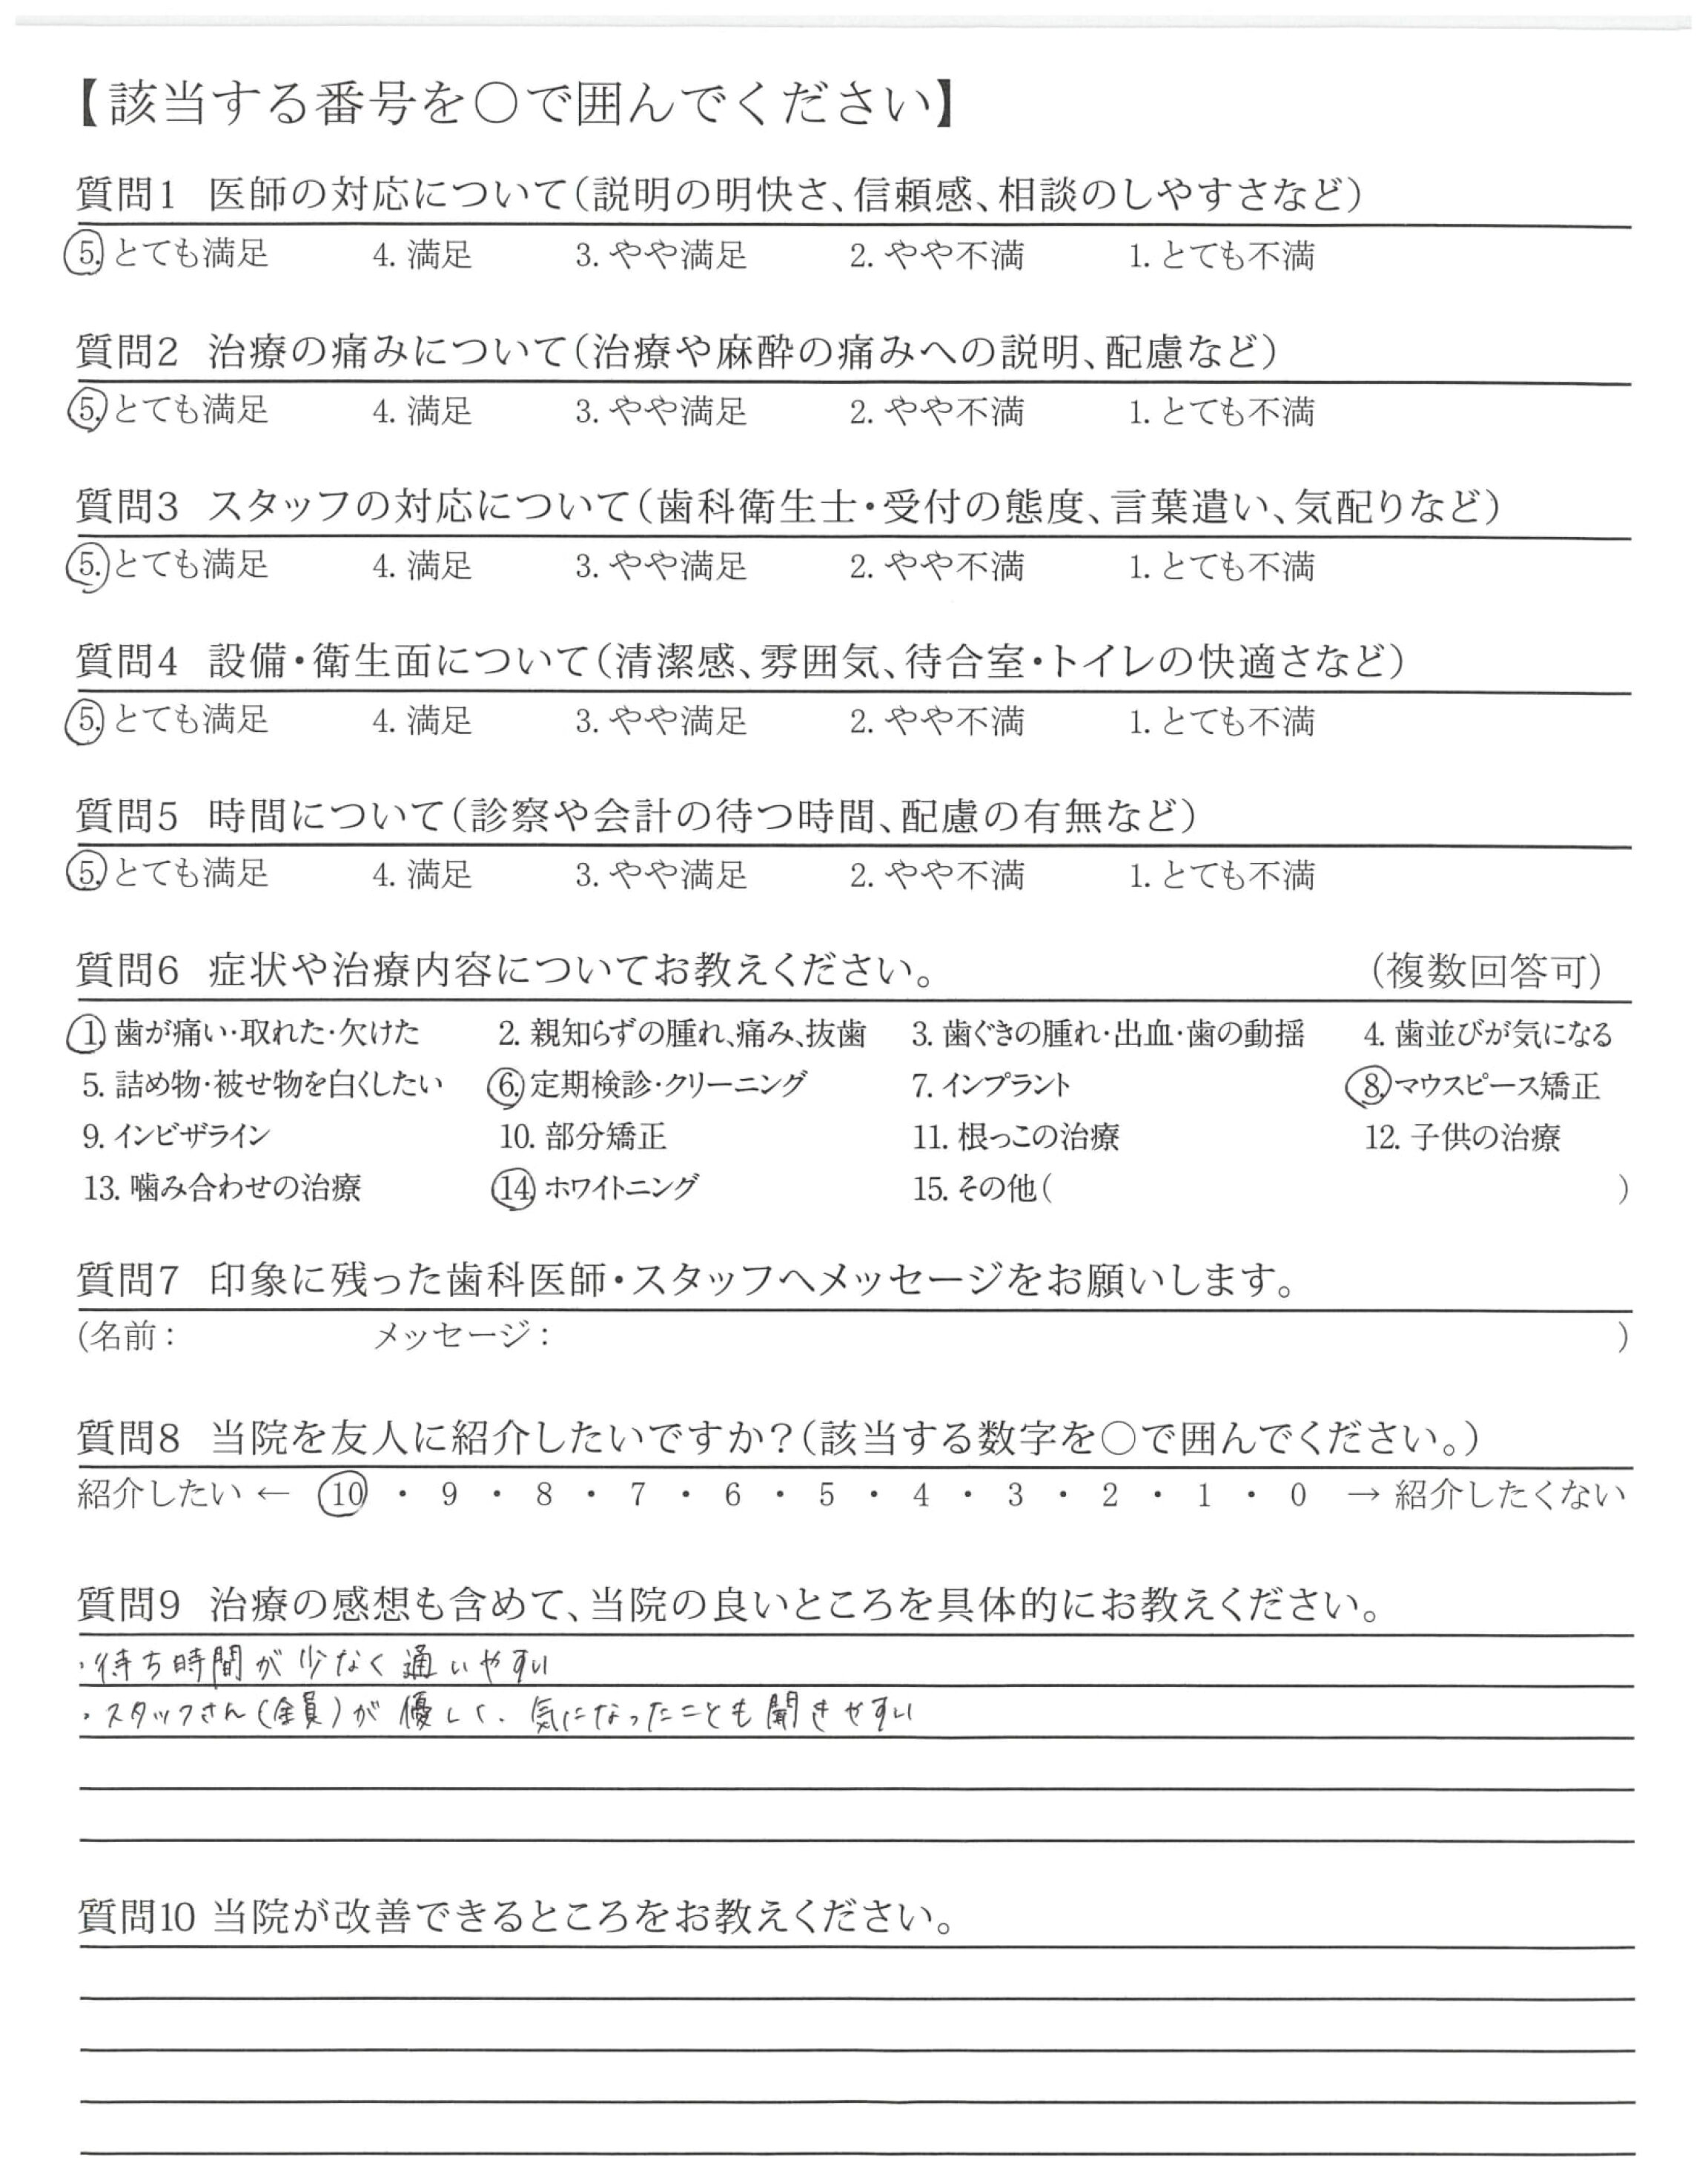 【該当する番号を〇で囲んでください】
質問1 医師の対応について(説明の明快さ、信頼感、相談のしやすさなど)
5. とても満足 4. 満足 3. やや満足 2. やや不満 1. とても不満
質問2 治療の痛みについて(治療や麻酔の痛みへの説明、配慮など)
5. とても満足 4. 満足 3. やや満足 2. やや不満 1. とても不満
質問3 スタッフの対応について(歯科衛生士・受付の態度、言葉遣い、気配りなど)
5. とても満足 4. 満足 3. やや満足 2. やや不満 1. とても不満
質問4 設備・衛生面について(清潔感、雰囲気、待合室・トイレの快適さなど)
5. とても満足 4. 満足 3. やや満足 2. やや不満 1. とても不満
質問5 時間について(診察や会計の待つ時間、配慮の有無など)
5. とても満足 4. 満足 3. やや満足 2. やや不満 1. とても不満
質問6 症状や治療内容についてお教えください。 (複数回答可)
1. 歯が痛い・取れた・欠けた 2. 親知らずの腫れ、痛み、抜歯 3. 歯ぐきの腫れ・出血・歯の動揺 4. 歯並びが気になる
5. 詰め物・被せ物を白くしたい 6. 定期検診・クリーニング 7. インプラント 8. マウスピース矯正
9. インビザライン 10. 部分矯正 11. 根っこの治療 12. 子供の治療
13. 噛み合わせの治療 14. ホワイトニング 15. その他( )
質問7 印象に残った歯科医師・スタッフへメッセージをお願いします。
(名前: メッセージ: )
質問8 当院を友人に紹介したいですか?(該当する数字を〇で囲んでください。)
紹介したい ← 10 ・ 9 ・ 8 ・ 7 ・ 6 ・ 5 ・ 4 ・ 3 ・ 2 ・ 1 ・ 0 → 紹介したくない
質問9 治療の感想も含めて、当院の良いところを具体的にお教えください。
・待ち時間が少なく通いやすい
・スタッフさん(全員)が優しく、気になったことも聞きやすい
質問10 当院が改善できるところをお教えください。